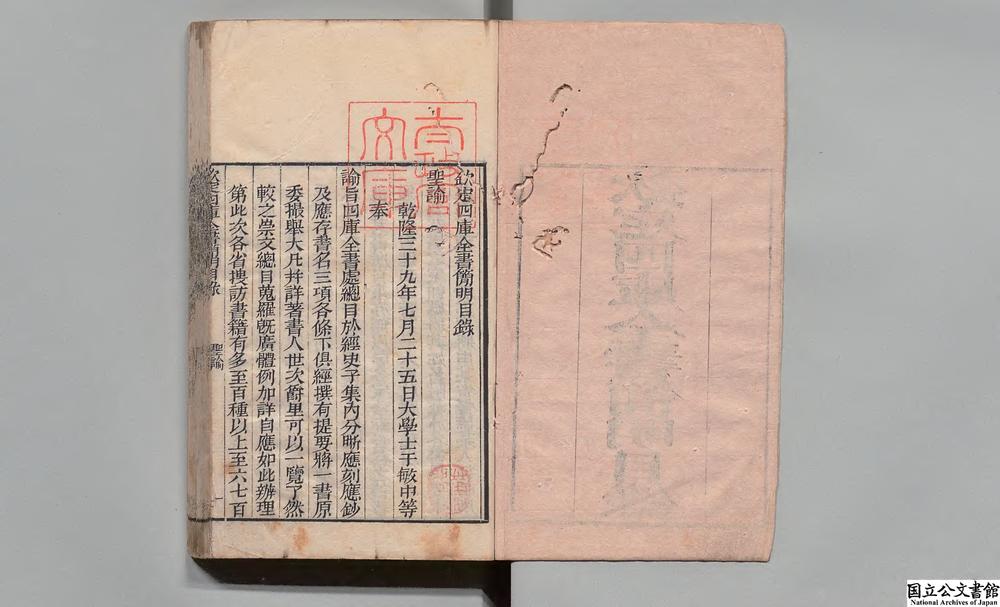 欽定四庫全書簡明目錄
聖諭
乾隆三十九年七月二十五日大學士于敏中等
奉
諭旨四庫全書處總目於經史子集內分晰應刻應鈔
及應存書名三項各條下俱經撰有提要將一書原
委撮舉大凡幷詳著書人世次爵里可以一覽了然
較之崇文總目蒐羅旣廣體例加詳自應如此辦理
第此次各省搜訪書籍有多至百種以上至六七百
欽定四庫全書簡明目錄
聖諭
一
太政官文庫
国立公文書館
National Archives of Japan